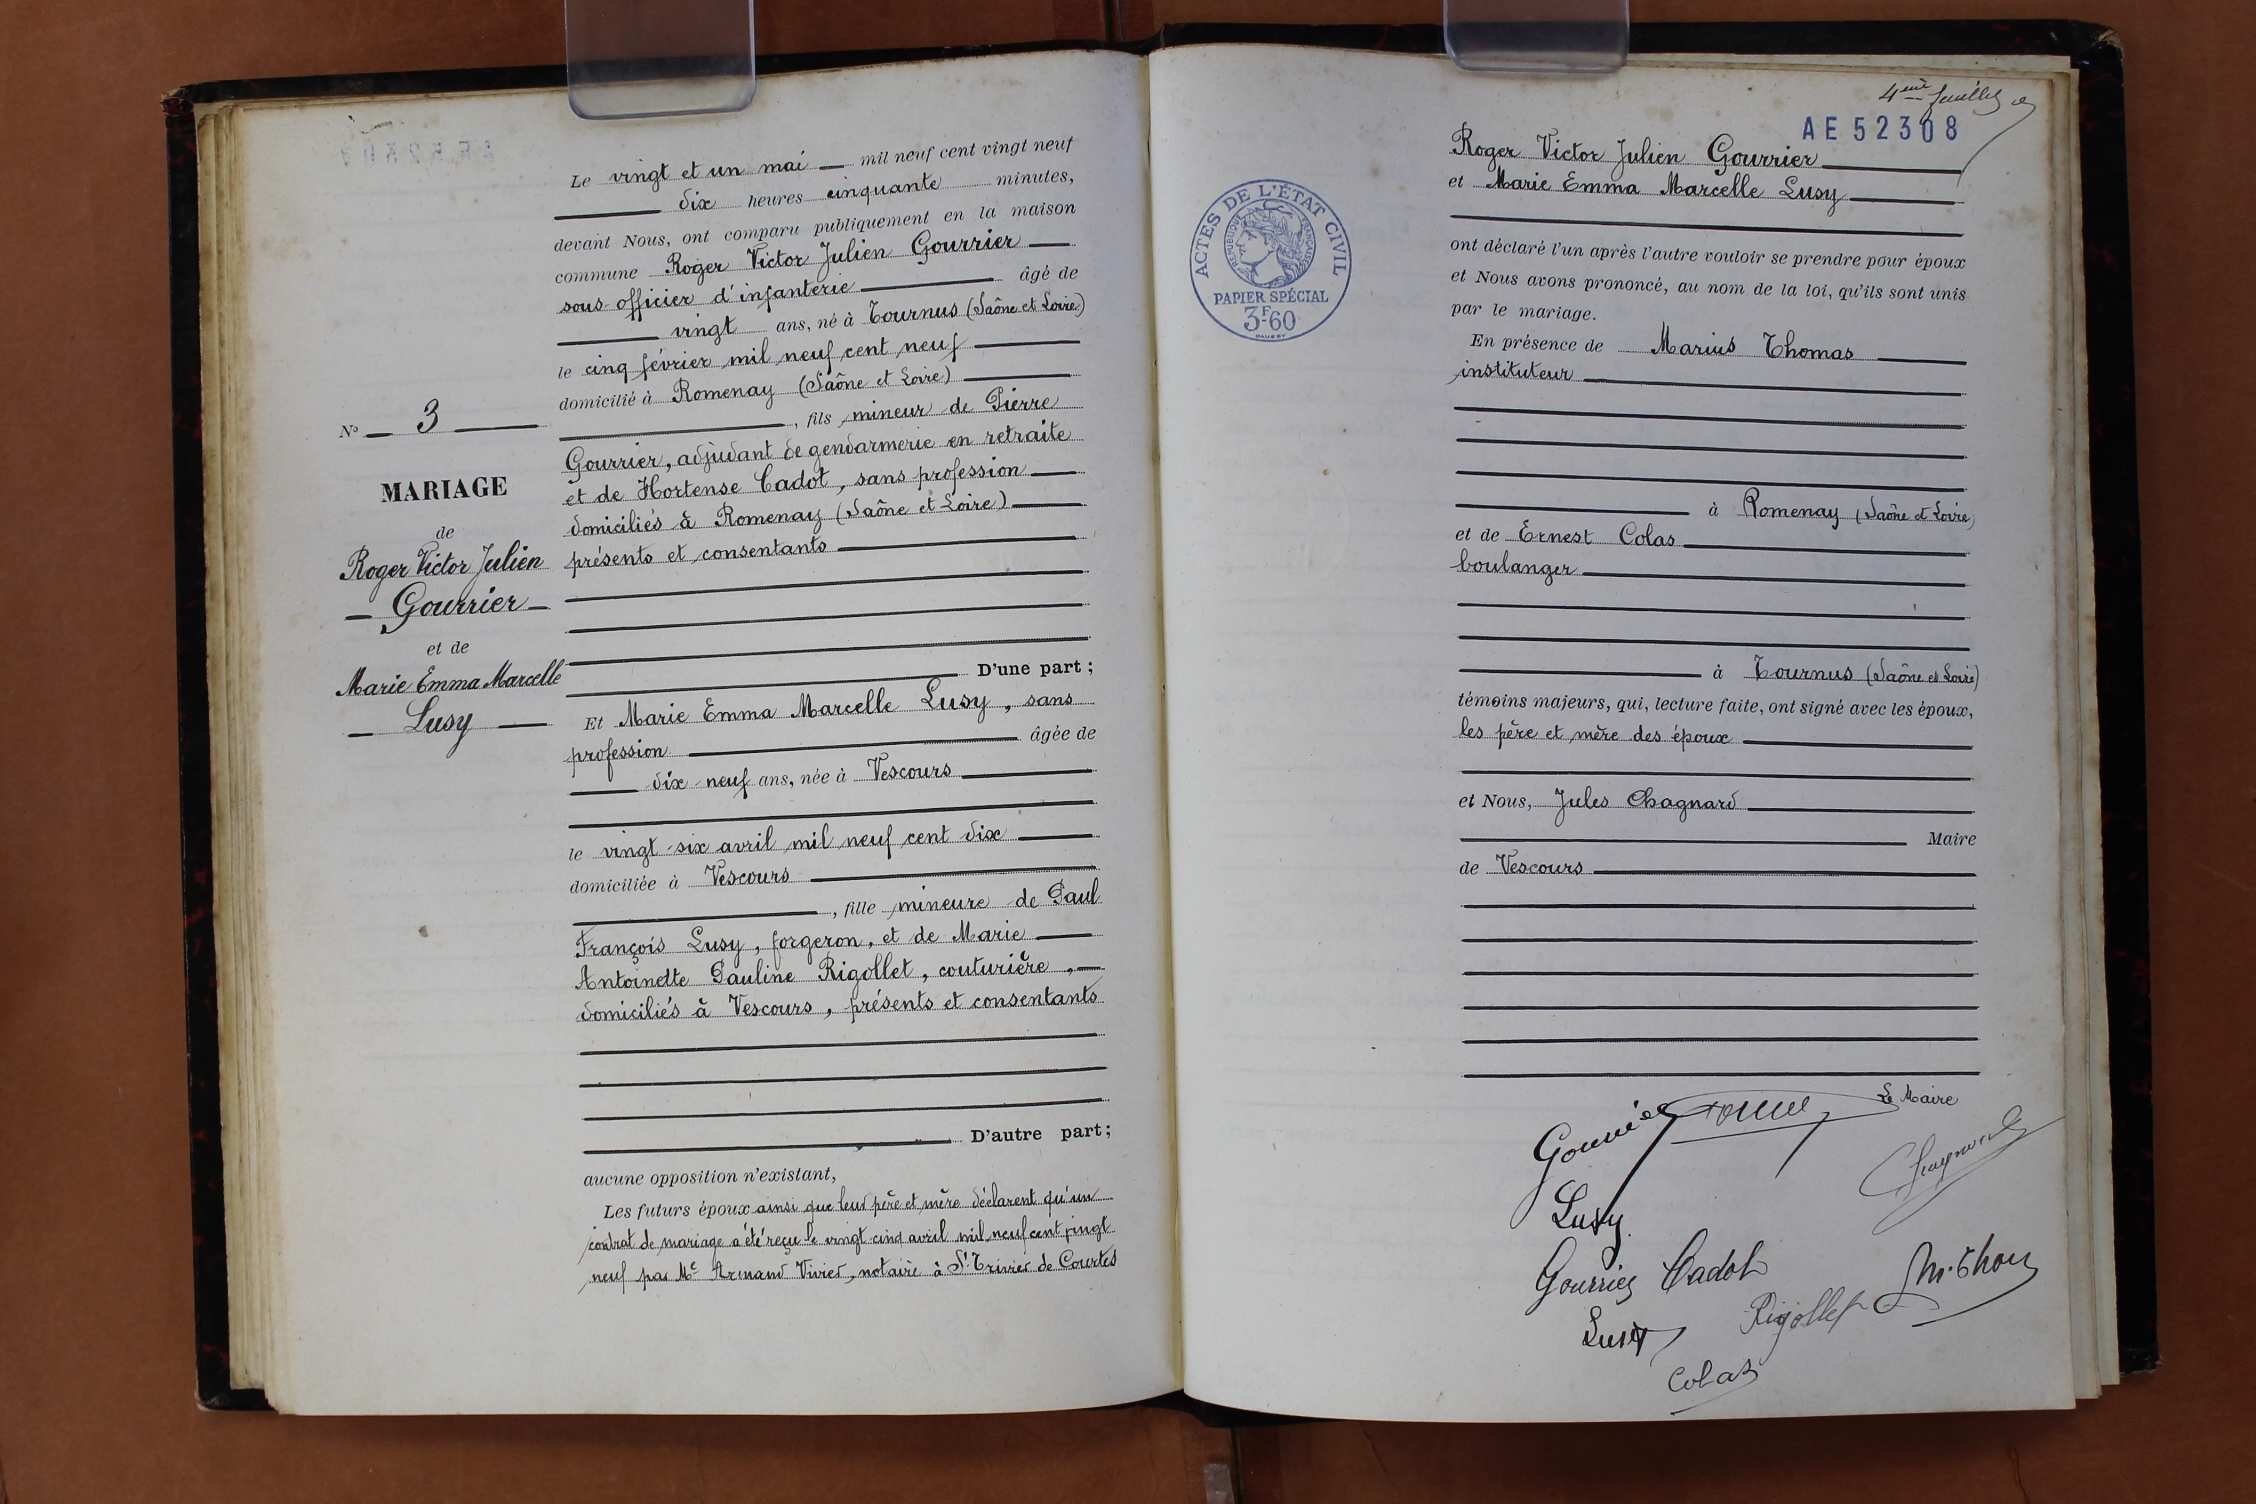 N° 3
MARIAGE
de
Roger Victor Julien
Gourrier
et de
Marie Emma Marcelle
Lusy
Le vingt et un mai mil neuf cent vingt neuf
dix heures cinquante minutes,
devant Nous, ont comparu publiquement en la maison
commune Roger Victor Julien Gourrier
sous-officier d'infanterie âgé de
vingt ans, né à Tournus (Saône et Loire)
le cinq février mil neuf cent neuf
domicilié à Romenay (Saône et Loire)
, fils mineur de Pierre
Gourrier, adjudant de gendarmerie en retraite
et de Hortense Cadot, sans profession
domiciliés à Romenay (Saône et Loire)
présents et consentants
D'une part ;
Et Marie Emma Marcelle Lusy, sans
profession âgée de
dix-neuf ans, née à Vescours
le vingt-six avril mil neuf cent dix
domiciliée à Vescours
, fille mineure de Paul
François Lusy, forgeron, et de Marie
Antoinette Pauline Rigollet, couturière,
domiciliés à Vescours, présents et consentants
D'autre part ;
aucune opposition n'existant,
Les futurs époux ainsi que leur père et mère déclarent qu'un
contrat de mariage a été reçu le vingt-cinq avril mil neuf cent vingt
neuf par Me Armand Vivier, notaire à St Trivier de Courtes
4ème feuillet
AE 52308
ACTES DE L'ÉTAT CIVIL
RÉPUBLIQUE FRANÇAISE
PAPIER SPÉCIAL
3F-60
Roger Victor Julien Gourrier
et Marie Emma Marcelle Lusy
ont déclaré l'un après l'autre vouloir se prendre pour époux
et Nous avons prononcé, au nom de la loi, qu'ils sont unis
par le mariage.
En présence de Marius Thomas
instituteur
à Romenay (Saône et Loire)
et de Ernest Colas
boulanger
à Tournus (Saône et Loire)
témoins majeurs, qui, lecture faite, ont signé avec les époux,
les père et mère des époux
et Nous, Jules Chagnard
Maire
de Vescours
Le Maire
Gourrier
Chagnard
Lusy
Gourrier Cadot
M. Thomas
Lusy Rigollet
Colas